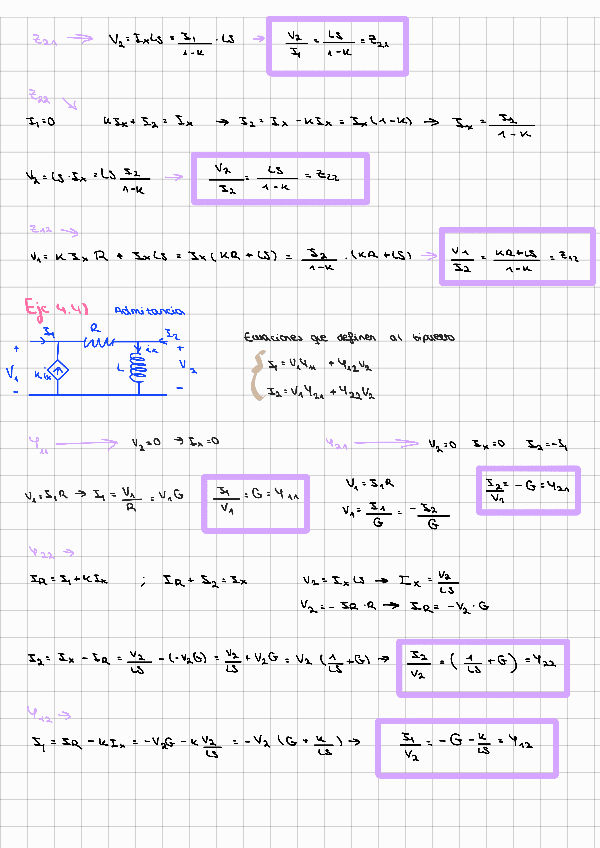 Z₂₁ → V₂ = IxLS = I₁/(1-K) · LS → V₂/I₁ = LS/(1-K) = Z₂₁
Z₂₂ ↘
I₁=0 KIx + I₂ = Ix → I₂ = Ix - KIx = Ix(1-K) → Ix = I₂/(1-K)
V₂ = LS · Ix = LS I₂/(1-K) → V₂/I₂ = LS/(1-K) = Z₂₂
Z₁₂ →
V₁ = K Ix R + IxLS = Ix(KR+LS) = I₂/(1-K) · (KR+LS) → V₁/I₂ = (KR+LS)/(1-K) = Z₁₂
Eje 4.4) Admitancia
I₁ R I₂
+ ix +
V₁ Kix L V₂
- -
Ecuaciones que definen al bipuerto
I₁ = V₁Y₁₁ + Y₁₂V₂
I₂ = V₁Y₂₁ + Y₂₂V₂
Y₁₁ → V₂=0 → Ix=0
V₁=I₁R → I₁ = V₁/R = V₁G I₁/V₁ = G = Y₁₁
Y₂₁ → V₂=0 Ix=0 I₂=-I₁
V₁ = I₁R
V₁ = I₁/G = -I₂/G I₂/V₁ = -G = Y₂₁
Y₂₂ →
IR = I₁ + KIx ; IR + I₂ = Ix V₂ = Ix LS → Ix = V₂/LS
V₂ = - IR · R → IR = -V₂ · G
I₂ = Ix - IR = V₂/LS - (-V₂G) = V₂/LS + V₂G = V₂ (1/LS + G) → I₂/V₂ = (1/LS + G) = Y₂₂
Y₁₂ →
I₁ = IR - KIx = -V₂G - K V₂/LS = -V₂ (G + K/LS) → I₁/V₂ = -G - K/LS = Y₁₂